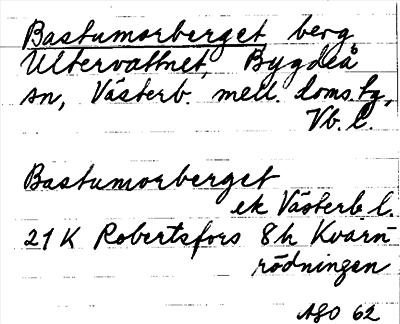 Bastumorberget berg
Ultervattnet, Bygdeå
sn, Västerb. mell. doms. tg,
Vb. l.
Bastumorberget
ek Västerb l.
21 K Robertsfors 8h Kvarn-
rödningen
ASO 62